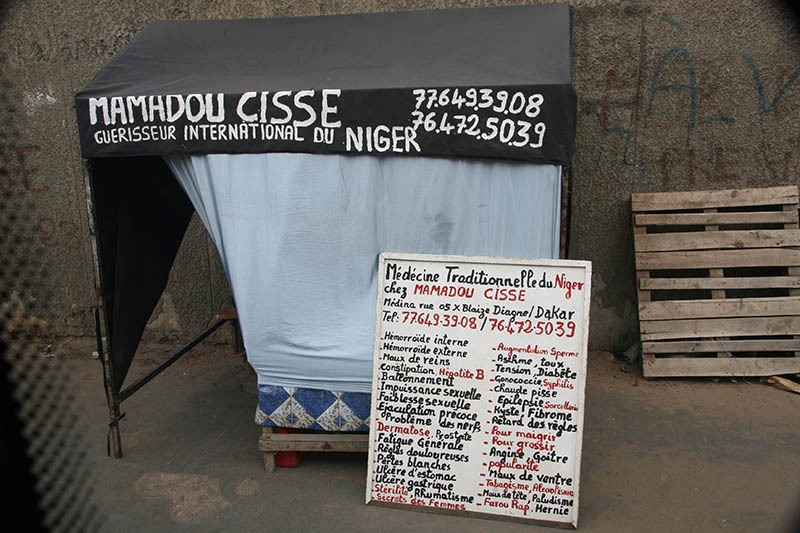 MAMADOU CISSE
GUERISSEUR INTERNATIONAL DU NIGER
77.649.39.08
76.472.50.39
Médécine Traditionnelle du Niger
chez MAMADOU CISSE
Médina rue 05 x Blaize Diagne/Dakar
Tel: 77.649.39.08 / 76.472.50.39
- Hémorroïde interne
- Hémorroïde externe
- Maux de reins
- Constipation, Hépatite B
- Ballonnement
- Impuissance sexuelle
- Faiblesse sexuelle
- Ejaculation précoce
- Problème des nerfs
- Dermatose, Prostate
- Fatigue Générale
- Règles douloureuses
- Pertes blanches
- Ulcère d'estomac
- Ulcère gastrique
- Stérilité, Rhumatisme
- Secrets des Femmes
- Augmentation Sperme
- Asthme, toux
- Tension, Diabète
- Gonococcie, Syphilis
- Chaude pisse
- Epilepsie, Sorcellerie
- Kyste, Fibrome
- Retard des règles
- Pour maigrir
- Pour grossir
- Angine, Goitre
- popularité
- Maux de ventre
- Tabagisme, Alcoolisme
- Maux de tête, Paludisme
- Farou Rap, Hernie